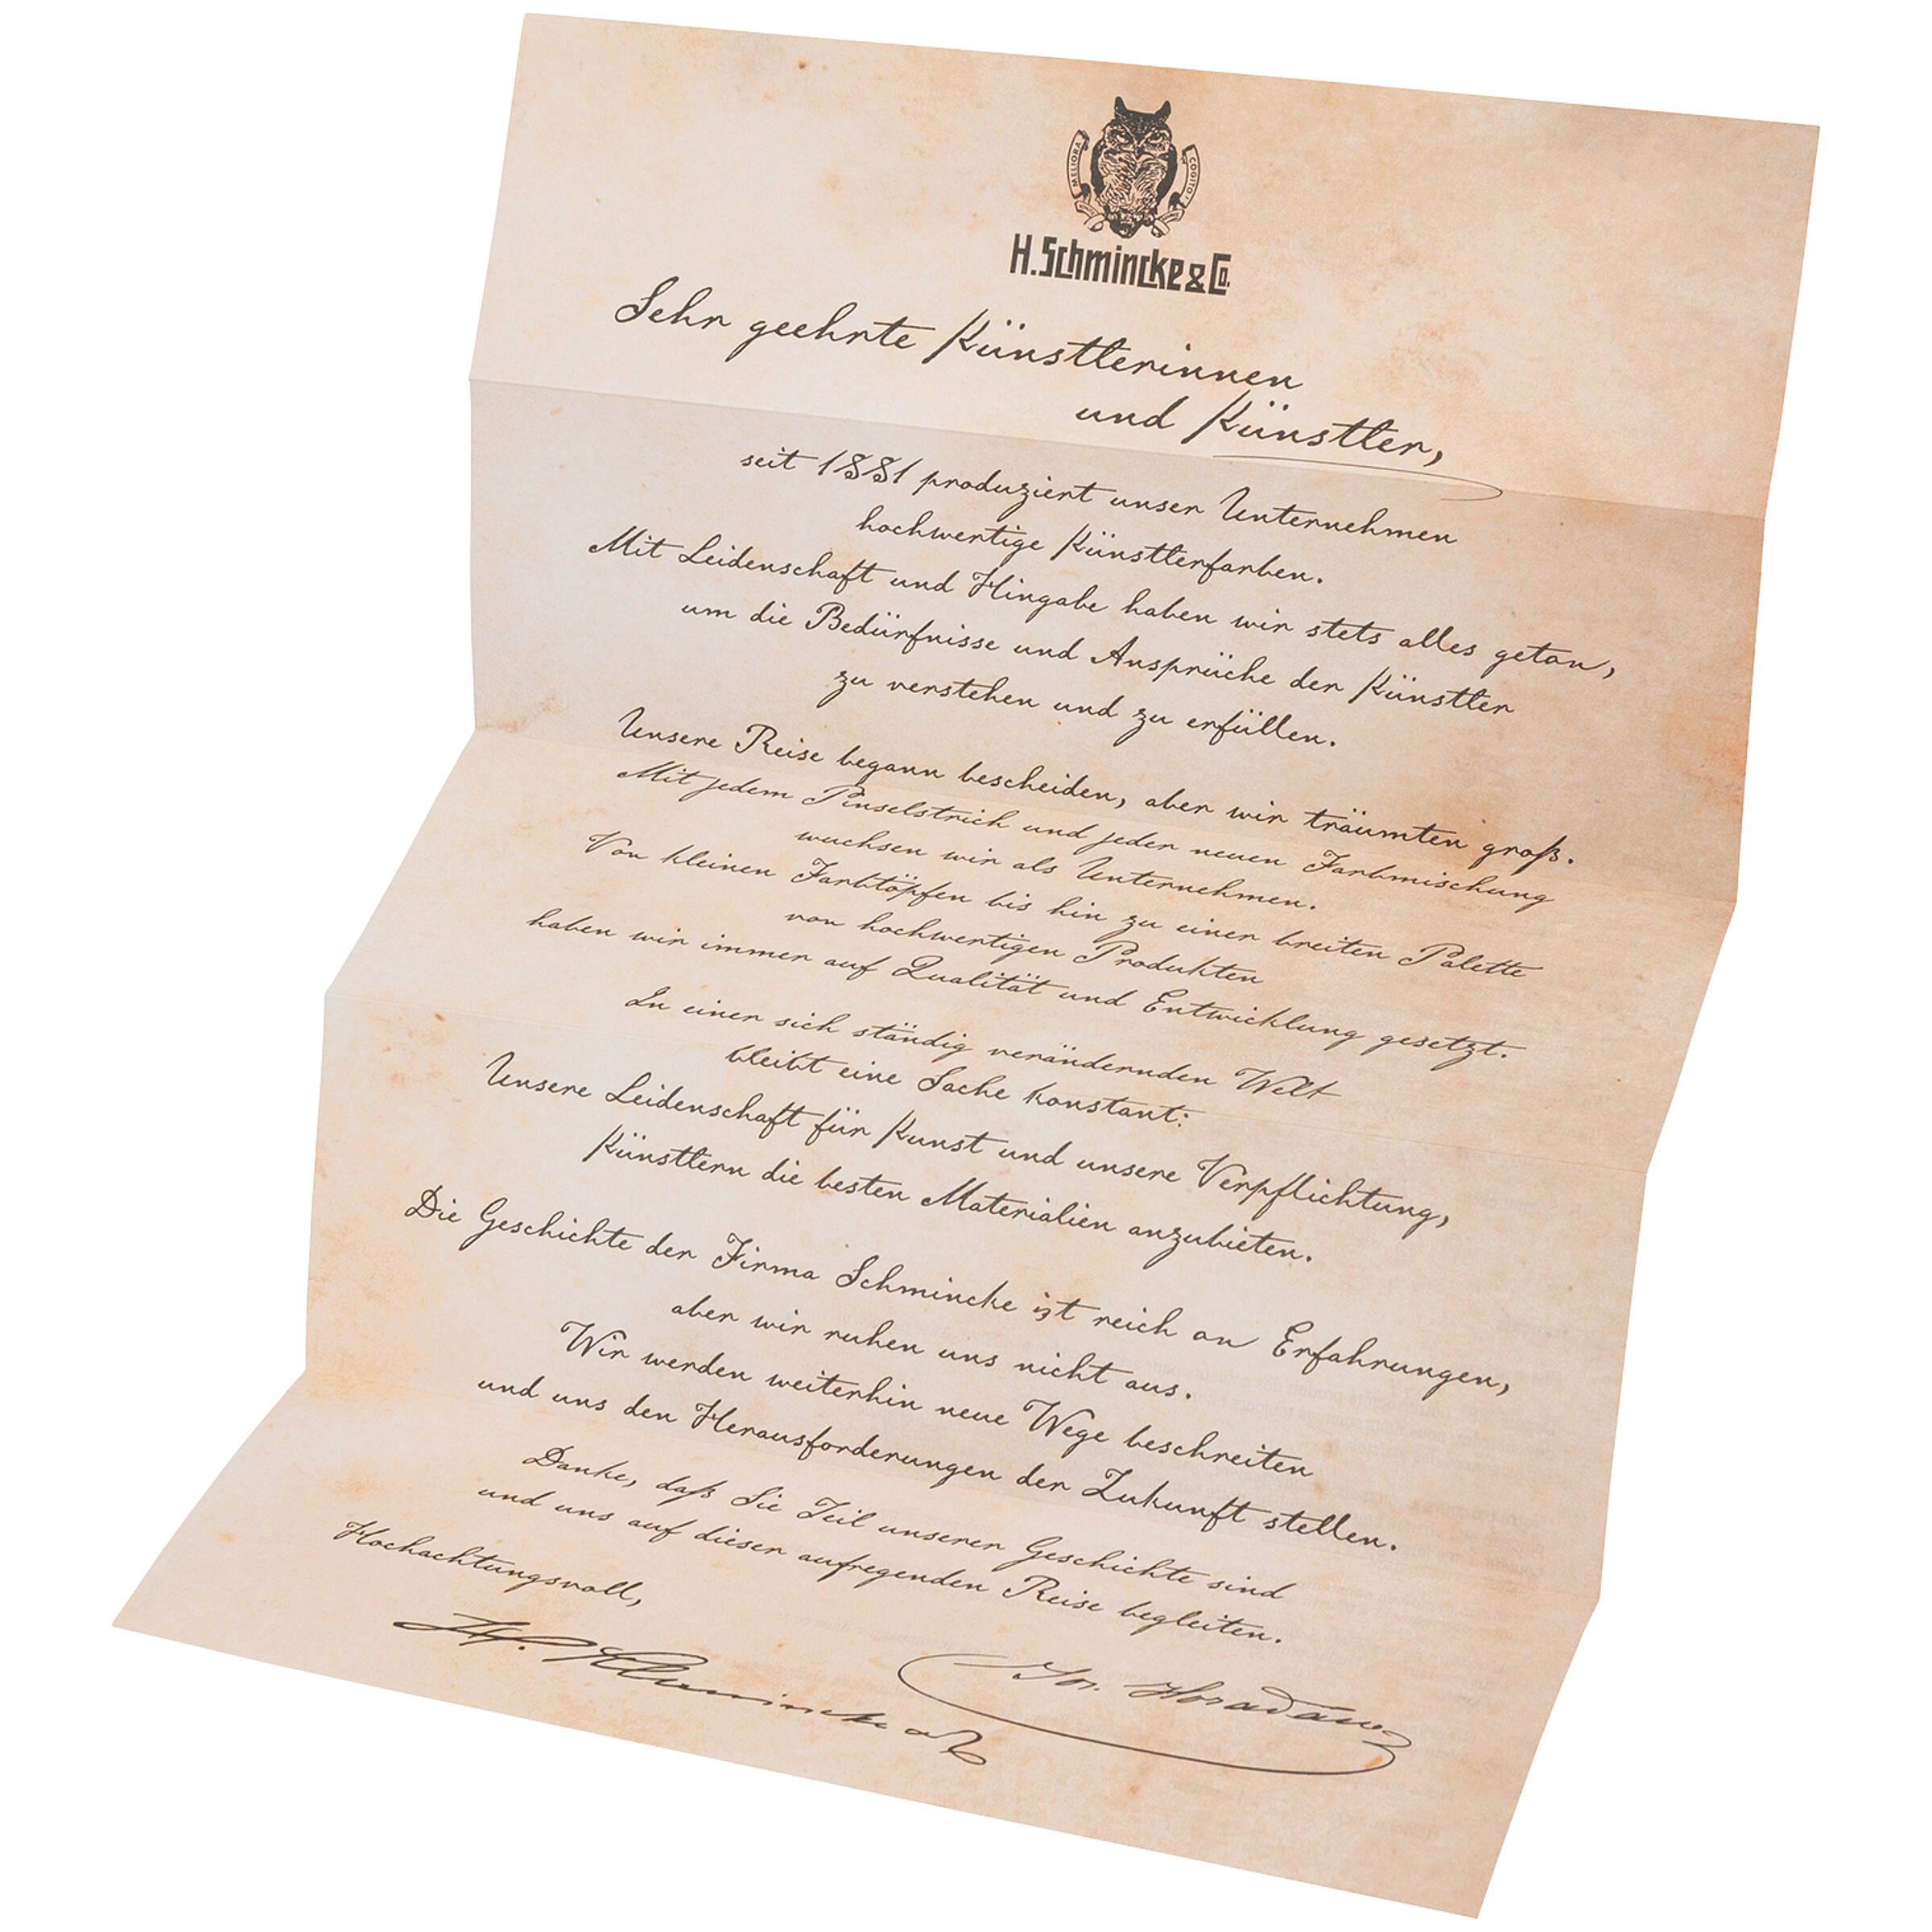 MELIORA COGITO
H. Schmincke & Co.
Sehr geehrte Künstlerinnen
und Künstler,
seit 1881 produziert unser Unternehmen
hochwertige Künstlerfarben.
Mit Leidenschaft und Hingabe haben wir stets alles getan,
um die Bedürfnisse und Ansprüche der Künstler
zu verstehen und zu erfüllen.
Unsere Reise begann bescheiden, aber wir träumten groß.
Mit jedem Pinselstrich und jeder neuen Farbmischung
wuchsen wir als Unternehmen.
Von kleinen Farbtöpfen bis hin zu einer breiten Palette
von hochwertigen Produkten
haben wir immer auf Qualität und Entwicklung gesetzt.
In einer sich ständig verändernden Welt
bleibt eine Sache konstant:
Unsere Leidenschaft für Kunst und unsere Verpflichtung,
Künstlern die besten Materialien anzubieten.
Die Geschichte der Firma Schmincke ist reich an Erfahrungen,
aber wir ruhen uns nicht aus.
Wir werden weiterhin neue Wege beschreiten
und uns den Herausforderungen der Zukunft stellen.
Danke, daß Sie Teil unserer Geschichte sind
und uns auf dieser aufregenden Reise begleiten.
Hochachtungsvoll,
H. Schmincke
Jos. Horadam